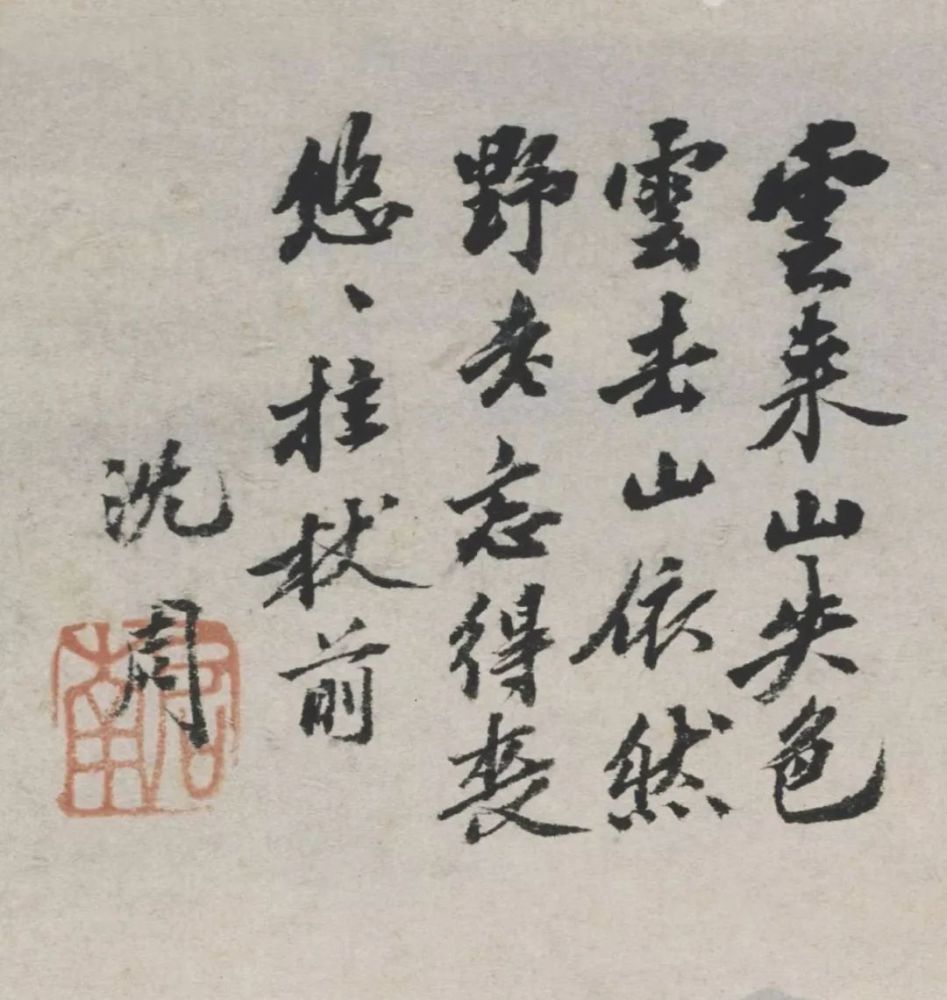 雲来山失色
雲去山依然
野老忘得喪
悠、拄杖前
沈周
啓南